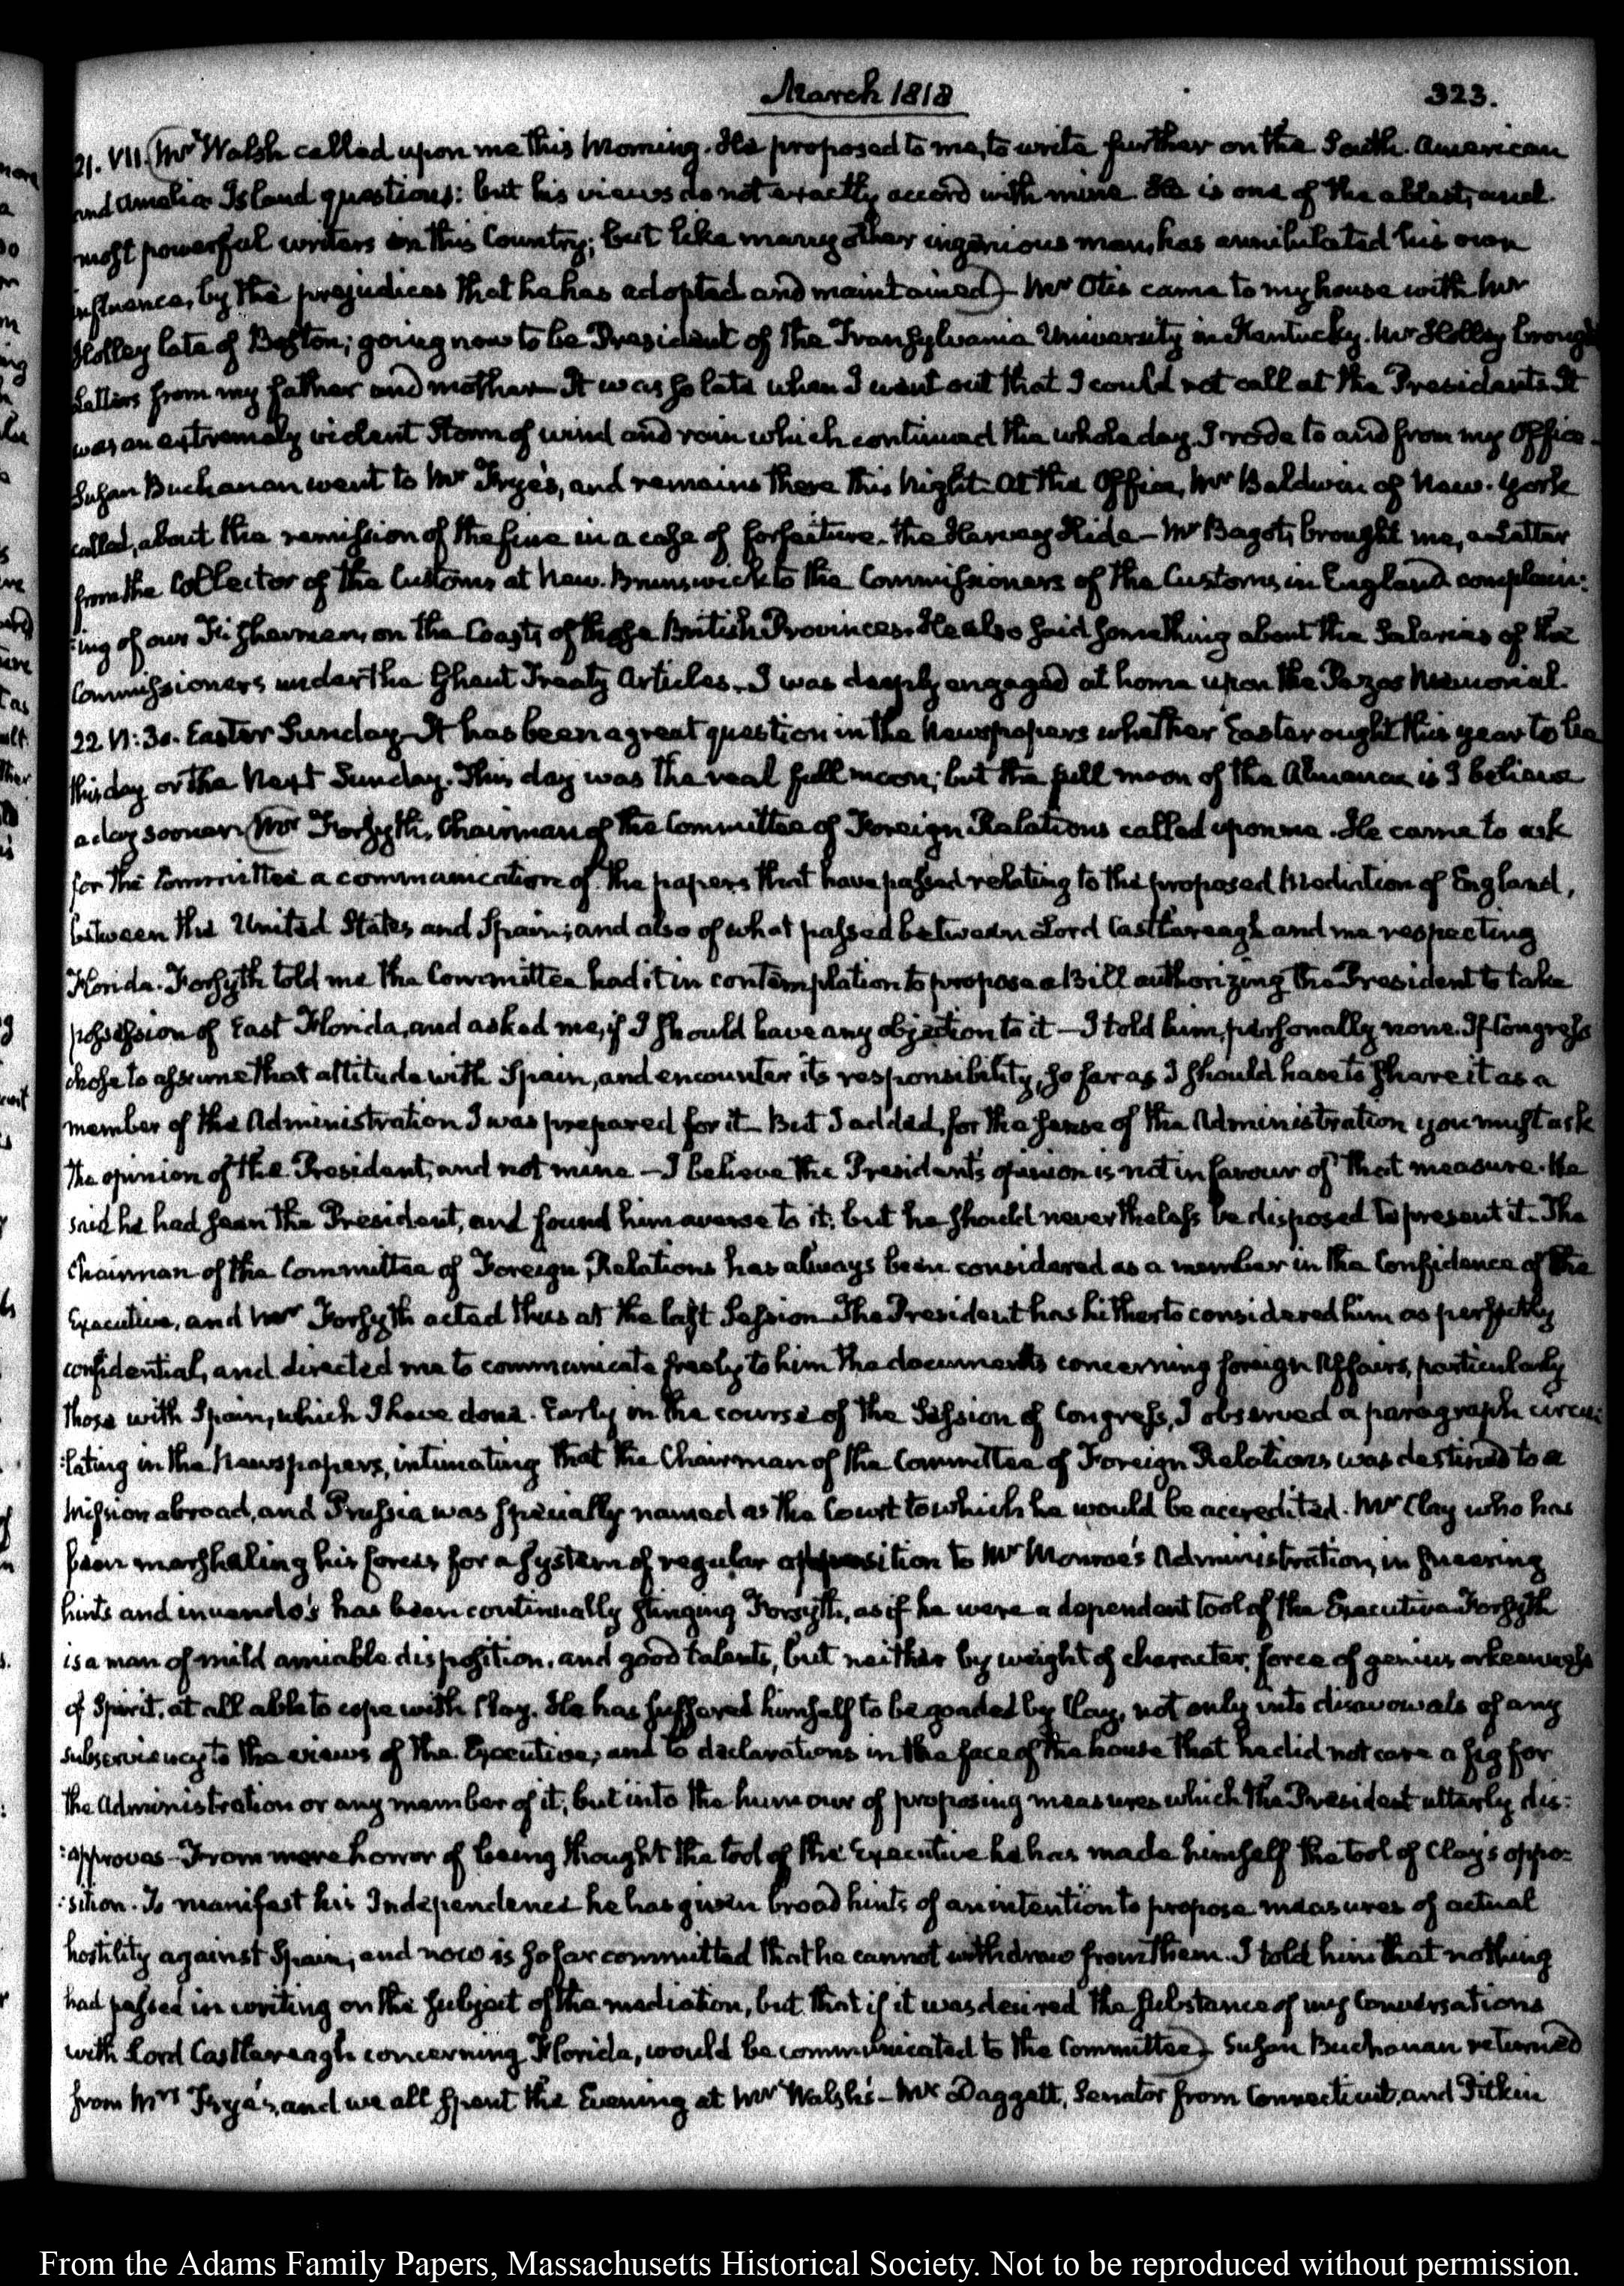 March 1818
323.
21. VII. (Mr Walsh called upon me this Morning. He proposed to me, to write further on the South-American
and Amelia Island questions: but his views do not exactly accord with mine. He is one of the ablest, and
most powerful writers in this Country; but like many other ingenious men, has annihilated his own
influence, by the prejudices that he has adopted and maintained)—Mr Otis came to my house with Mr
Holley late of Boston; going now to be President of the Transylvania University in Kentucky. Mr Holley brought
Letters from my father and mother—It was so late when I went out that I could not call at the Presidents. It
was an extremely violent Storm of wind and rain which continued the whole day. I rode to and from my Office—
Susan Buchanan went to Mr Frye's, and remains there this Night. At the Office, Mr Baldwin of New-York
called, about the remission of the fine in a case of forfeiture. the Harvey Hide—Mr Bagot, brought me, a Letter
from the Collector of the Customs at New-Brunswick to the Commissioners of the Customs, in England complain:
:ing of our Fishermen, on the Coasts of those British Provinces. He also said something about the Salaries of the
Commissioners under the Ghent Treaty Articles. I was deeply engaged at home upon the Pazos Memorial.
22 VI:30. Easter Sunday—It has been a great question in the Newspapers whether Easter ought this year to be
this day or the Next Sunday. This day was the real full moon; but the full moon of the Almanac is I believe
a day sooner. (Mr Forsyth, Chairman of the Committee of Foreign Relations called upon me. He came to ask
for the Committee a communication of the papers that have passed relating to the proposed Mediation of England,
between the United States and Spain; and also of what passed between Lord Castlereagh and me respecting
Florida. Forsyth told me the Committee had it in contemplation to propose a Bill authorizing the President to take
possession of East Florida, and asked me, if I should have any objection to it—I told him, personally none. If Congress
chose to assume that attitude with Spain, and encounter its responsibility, so far as I should have to share it as a
member of the Administration I was prepared for it—But I added, for the sense of the Administration you must ask
the opinion of the President, and not mine—I believe the President's opinion is not in favour of that measure. He
said he had seen the President, and found him averse to it; but he should nevertheless be disposed to present it. The
Chairman of the Committee of Foreign Relations has always been considered as a member in the Confidence of the
Executive, and Mr Forsyth acted thus at the last Session—The President has hitherto considered him as perfectly
confidential, and directed me to communicate freely to him the documents concerning foreign Affairs, particularly
those with Spain, which I have done. Early in the course of the Session of Congress, I observed a paragraph circu:
:lating in the Newspapers, intimating that the Chairman of the Committee of Foreign Relations was destined to a
mission abroad, and Prussia was specially named as the Court to which he would be accredited. Mr Clay who has
been marshaling his forces for a system of regular opposition to Mr Monroe's Administration, in sneering
hints and inuendo's has been continually stinging Forsyth, as if he were a dependent tool of the Executive. Forsyth
is a man of mild amiable disposition, and good talents, but neither by weight of character, force of genius, or keenness
of Spirit, at all able to cope with Clay. He has suffered himself to be goaded by Clay, not only into disavowals of any
subserviency to the views of the Executive, and to declarations in the face of the house that he did not care a fig for
the Administration or any member of it; but into the humour of proposing measures which the President utterly dis:
:approves—From mere horror of being thought the tool of the Executive he has made himself the tool of Clay's oppo:
:sition. To manifest his Independence he has given broad hints of an intention to propose measures of actual
hostility against Spain, and now is so far committed that he cannot withdraw from them. I told him that nothing
had passed in writing on the subject of the mediation, but that if it was desired the substance of my Conversations
with Lord Castlereagh concerning Florida, would be communicated to the Committee.) Susan Buchanan returned
from Mrs Frye's, and we all spent the Evening at Mr Walsh's—Mr Daggett, Senator from Connecticut, and Pitkin
From the Adams Family Papers, Massachusetts Historical Society. Not to be reproduced without permission.